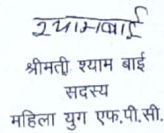 श्यामबाई
श्रीमती श्याम बाई
सदस्य
महिला युग एफ.पी.सी.